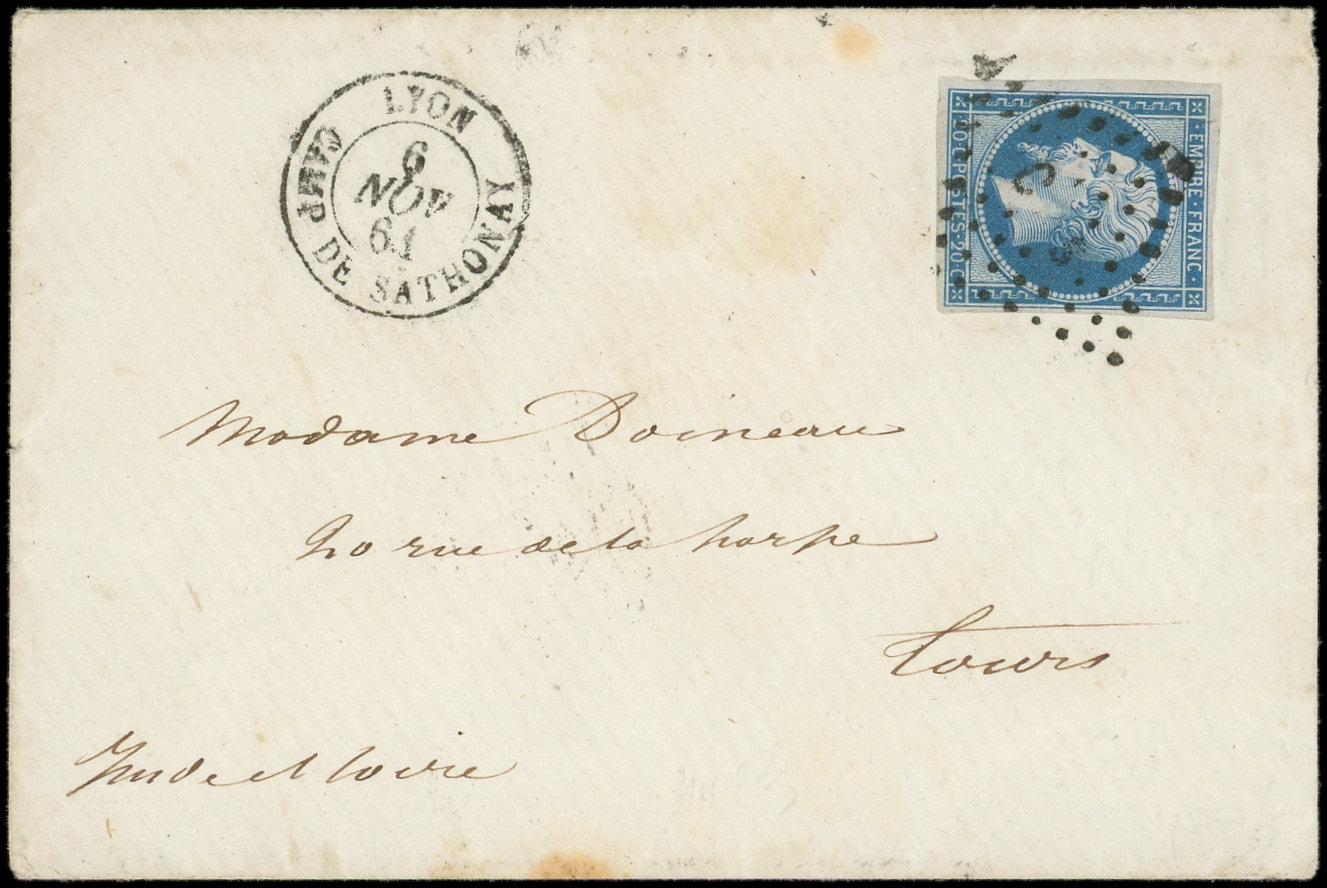 LYON
CAMP DE SATHONAY
6
NOV
61
EMPIRE·FRANC·
20·C·POSTES·20·C·
Madame Doineau
20 rue de la harpe
tours
Indre et loire